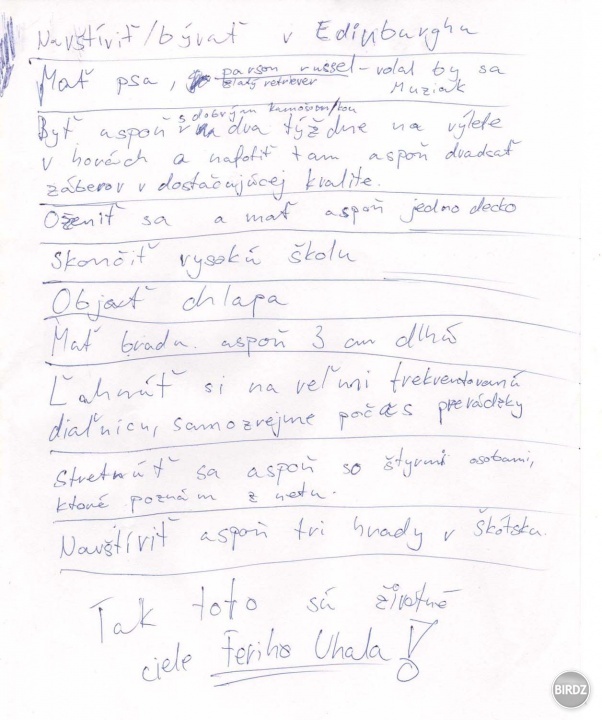 Navštíviť/bývať v Edinburghu
Mať psa, parson russel - volal by sa
zlatý retriever Muziak
s dobrým kamošom/kou
Byť aspoň na dva týždne na výlete
v horách a nafotiť tam aspoň dvadsať
záberov v dostačujúcej kvalite.
Oženiť sa a mať aspoň jedno decko
Skončiť vysokú školu
Objať chlapa
Mať bradu aspoň 3 cm dlhú
Ľahnúť si na veľmi frekventovanú
diaľnicu, samozrejme počas prevádzky
Stretnúť sa aspoň so štyrmi osobami,
ktoré poznám z netu.
Navštíviť aspoň tri hrady v Škótsku.
Tak toto sú životné
ciele Feriho Uhala!
BIRDZ